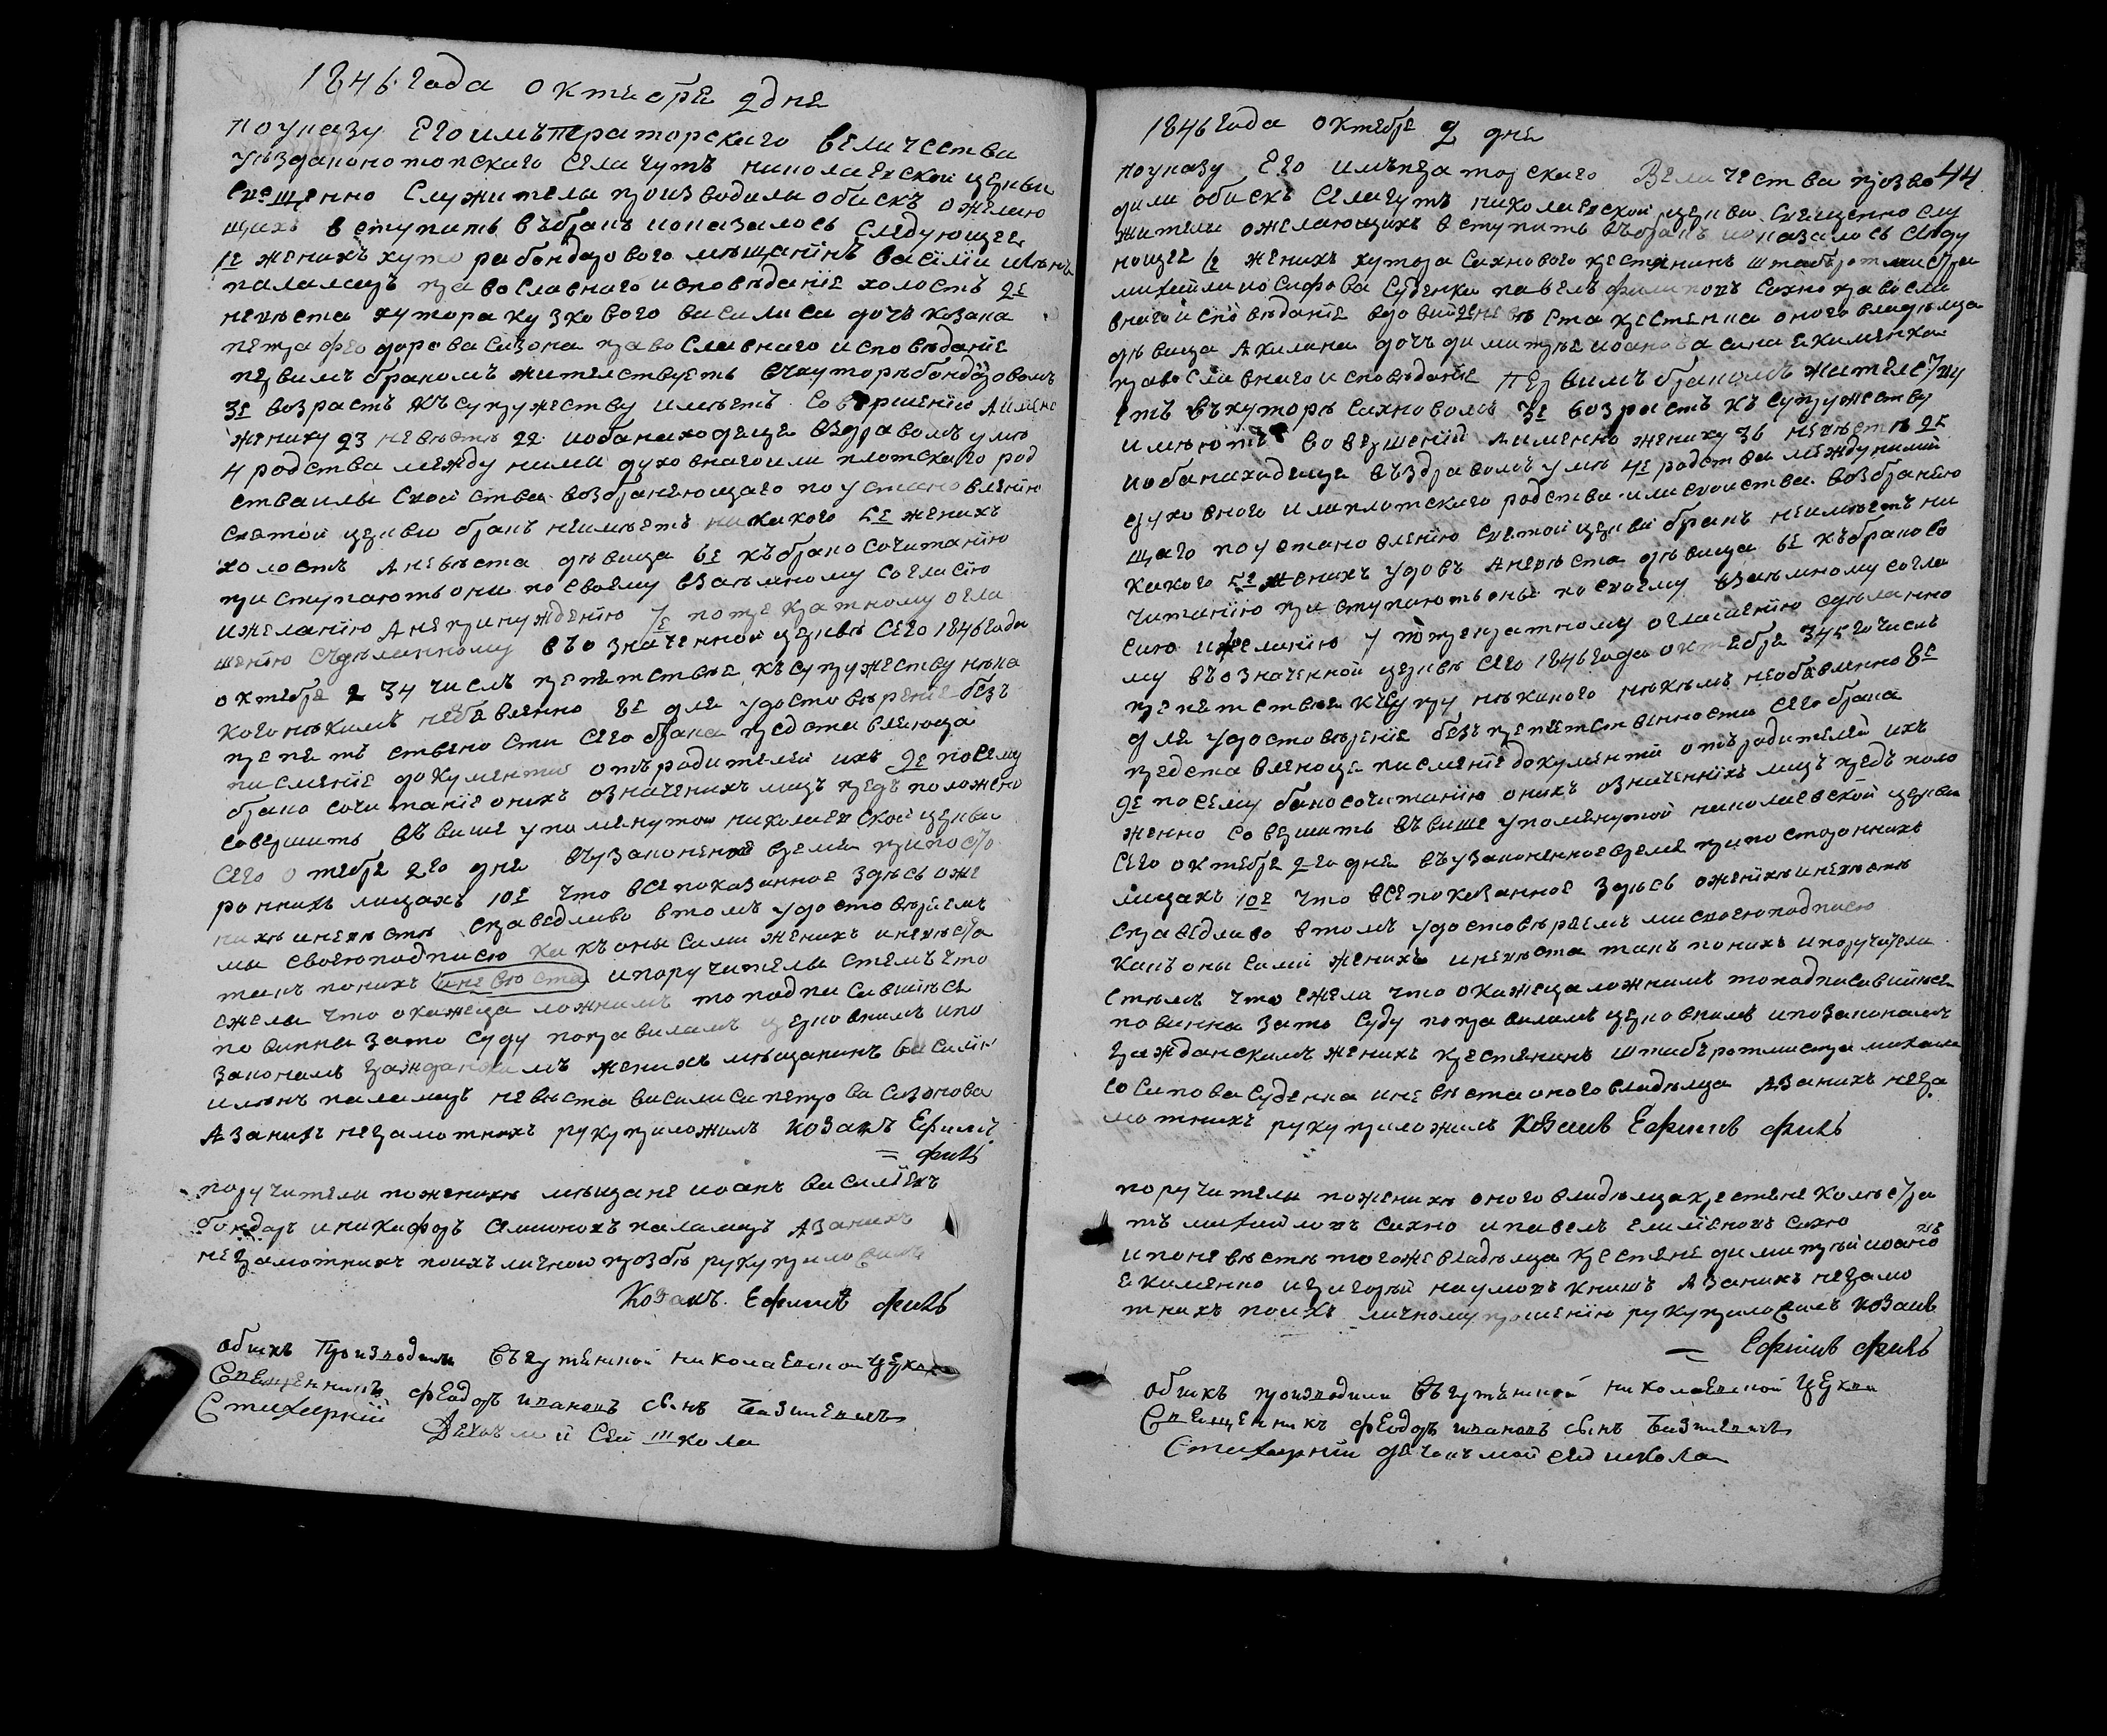 1846 года октября 2 дня
поуказу Его импѣраторскаго величества
уѣзда конотопского села гутъ николаевской церкви
священно служители производили обискъ ожелаю
щихъ вступить въбракъ иоказалось следующее
1е женихъ хутора бондарового мѣщанинъ василий
паламаръ православнаго исповѣданіе холостъ 2е
невѣста хутора василиса дочь козака
петра федорова сизона православнаго исповѣданіе
первимъ бракомъ жителствуетъ вхуторѣ бондаровомъ
3е возрастъ къ супружеству имѣетъ совершеній Аименно
жениху 23 невѣстѣ 22 иоба находеце вздравомъ умѣ
4 родства между ними духовнаго или плотскаго род
ства или свойства возбраняющаго поустановлению
святой церкви бракъ неимѣетъ никакого 5е женихъ
холостъ Аневѣста дѣвица 6е къбрако сочитанію
приступаютъ они по своему взаимному согласію
ижеланію Анепринуждению 7е потрекратному огла
шению сдѣланному въозначенной церквѣ сего 1846 года
октебре 2 3 4 числъ препятствие къ супружеству нѣка
кого нѣкимъ необявленно 8е для удостовѣрение безъ
препятъ ственности сего брака представляюца
писмение документи отъ родителей ихъ 9е посему
брако сочитаніе онихъ означенихъ лицъ предъ положено
совершить въ више упоменутой николаевской церкви
сего октебре 2го дня въузаконенное время припосто
ронихъ лицахъ 10е что все показанное здѣсь оже
нихѣ иневѣстѣ справедливо втомъ удостовѣряемъ
ми своеюподписю какъ они сами женихъ иневѣста
такъ понихъ иневѣста ипоручители стемъ что
ежели что окажеца ложнимъ то подписавшіесе
повинни зато суду поправиламъ церковнимъ ипо
законамъ гражданскимъ женихъ мѣщанинъ василій
паламаръ невѣста василиса петрова сизонова
Азанихъ неграмотнихъ руку приложилъ козакъ Ефимъ
= филь
поручители поженихѣ мѣщане иоанъ василіевъ
бондаръ иникифоръ паламаръ Азанихъ
неграмотнихъ поихъ личной прозбѣ руку приложилъ
Козакъ Ефимъ филь
обискъ Производили въгутянской николаевской Церкви
Священникъ феодоръ ивановъ сынъ Базилевичъ
Стихарній Дячокъ мойсей школа
1846 года октебре 2 дня
44
поуказу Его императорскаго Величества произво
дили обискъ села гутъ николаевской церкви священно слу
жители ожелающихъ вступить въбракъ иоказалось слѣду
ющее 1е женихъ хутора сахнового крестянинъ штабъротмистра
михаила иосифова суденка павелъ филиповъ сахно правосла
внаго исповѣданіе вдовий 2е невѣста крестянка оного владѣлца
дѣвица Акилина дочь димитрия иоанова сина екименка
православнаго исповѣданіе Первимъ бракомъ жителству
етъ въхуторѣ сахновомъ 3е возрастъ къ супружеству
имѣютъ совершений Аименно жениху 36 невѣстѣ 25
иобанаходеце въздравомъ умѣ 4е родства между ними
духовного илиплотского родства или свойства возбраняю
щаго поустановлению святой церкви бракъ неимѣетъ ни
какого 5е женихъ удовъ Аневѣста дѣвица 6е къбракосо
читанію приступаютъ они по своему взаимному согла
сию ижеланию 7 потрекратному оглашению сдѣланно
му въозначенной церквѣ сего 1846 года октебре 3 4 5 го числъ
препятствие къ супру нѣкакого нѣкимъ необявленно 8е
для удостовѣрение безъ препятственности сего брака
представляюце писмение документи отъродителей ихъ
9е посему бракосочитанию онихъ означеннихъ лицъ предъ поло
женно совершить въвише упоменутой николаевской церкви
сего октебре 2 го дня въузаконенное время припосторонихъ
лицахъ 10е что все показанное здѣсь оженихѣиневѣстѣ
справедливо втомъ удостовѣряемъ ми своеюподписю
какъ они сами женихъ иневѣста такъ понихъ ипоручители
стѣмъ что ежели что окажеца ложнимъ топодписавшийсе
повинни зато суду поправиламъ церковнимъ ипозаконамъ
гражданскимъ женихъ крестянинъ штабъротмистра михаила
суденка иневѣста оного владѣлца Азанихъ негра
мотнихъ руку приложилъ козакъ Ефимъ филь
поручители поженихѣ оного владѣлца крестяне
михайловъ сахно ипавелъ сахно
ипоневѣстѣ тогоже владѣлца крестяне димитрий иоановъ
екименко игригорий наумовъ книшъ Азанихъ неграмо
тнихъ поихъ личному прошению руку приложилъ козакъ
= Ефимъ филь
обискъ производили въгутянской николаевской Церкви
Священникъ феодоръ ивановъ сынъ Базилевичъ
Стихарній дячокъ мойсей школа